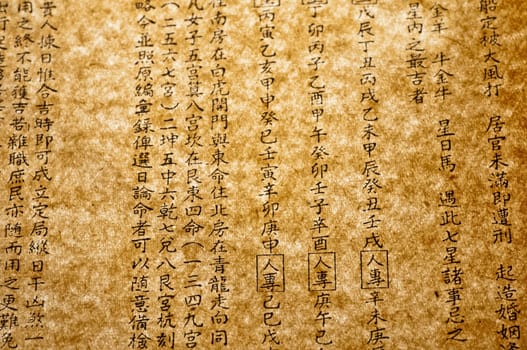 船定被大風打　居官未滿即遭刑　起造婚姻
金羊　牛金牛　星日馬　遇此七星諸事忌之
星內之最吉者
戊辰丁丑丙戌乙未甲辰癸丑壬戌人專辛未庚
丁卯丙子乙酉甲午癸卯壬子辛酉人專庚午己
丙寅乙亥甲申癸巳壬寅辛卯庚申人專己巳戊
往南房在白虎閘門與東命往北房在青龍走向同
凡女子五宮艮八宮坎在艮東四命（一三四九宮
（二五六七宮）二坤五中六乾七兌八艮宮杭刻
略令並照原編彙錄俾選日論命者可以隨意備檢
貴人揀日惟合吉時即可成立定局縱日干凶煞一
用之終不能獲吉若雜職庶民亦隨而用之更難免